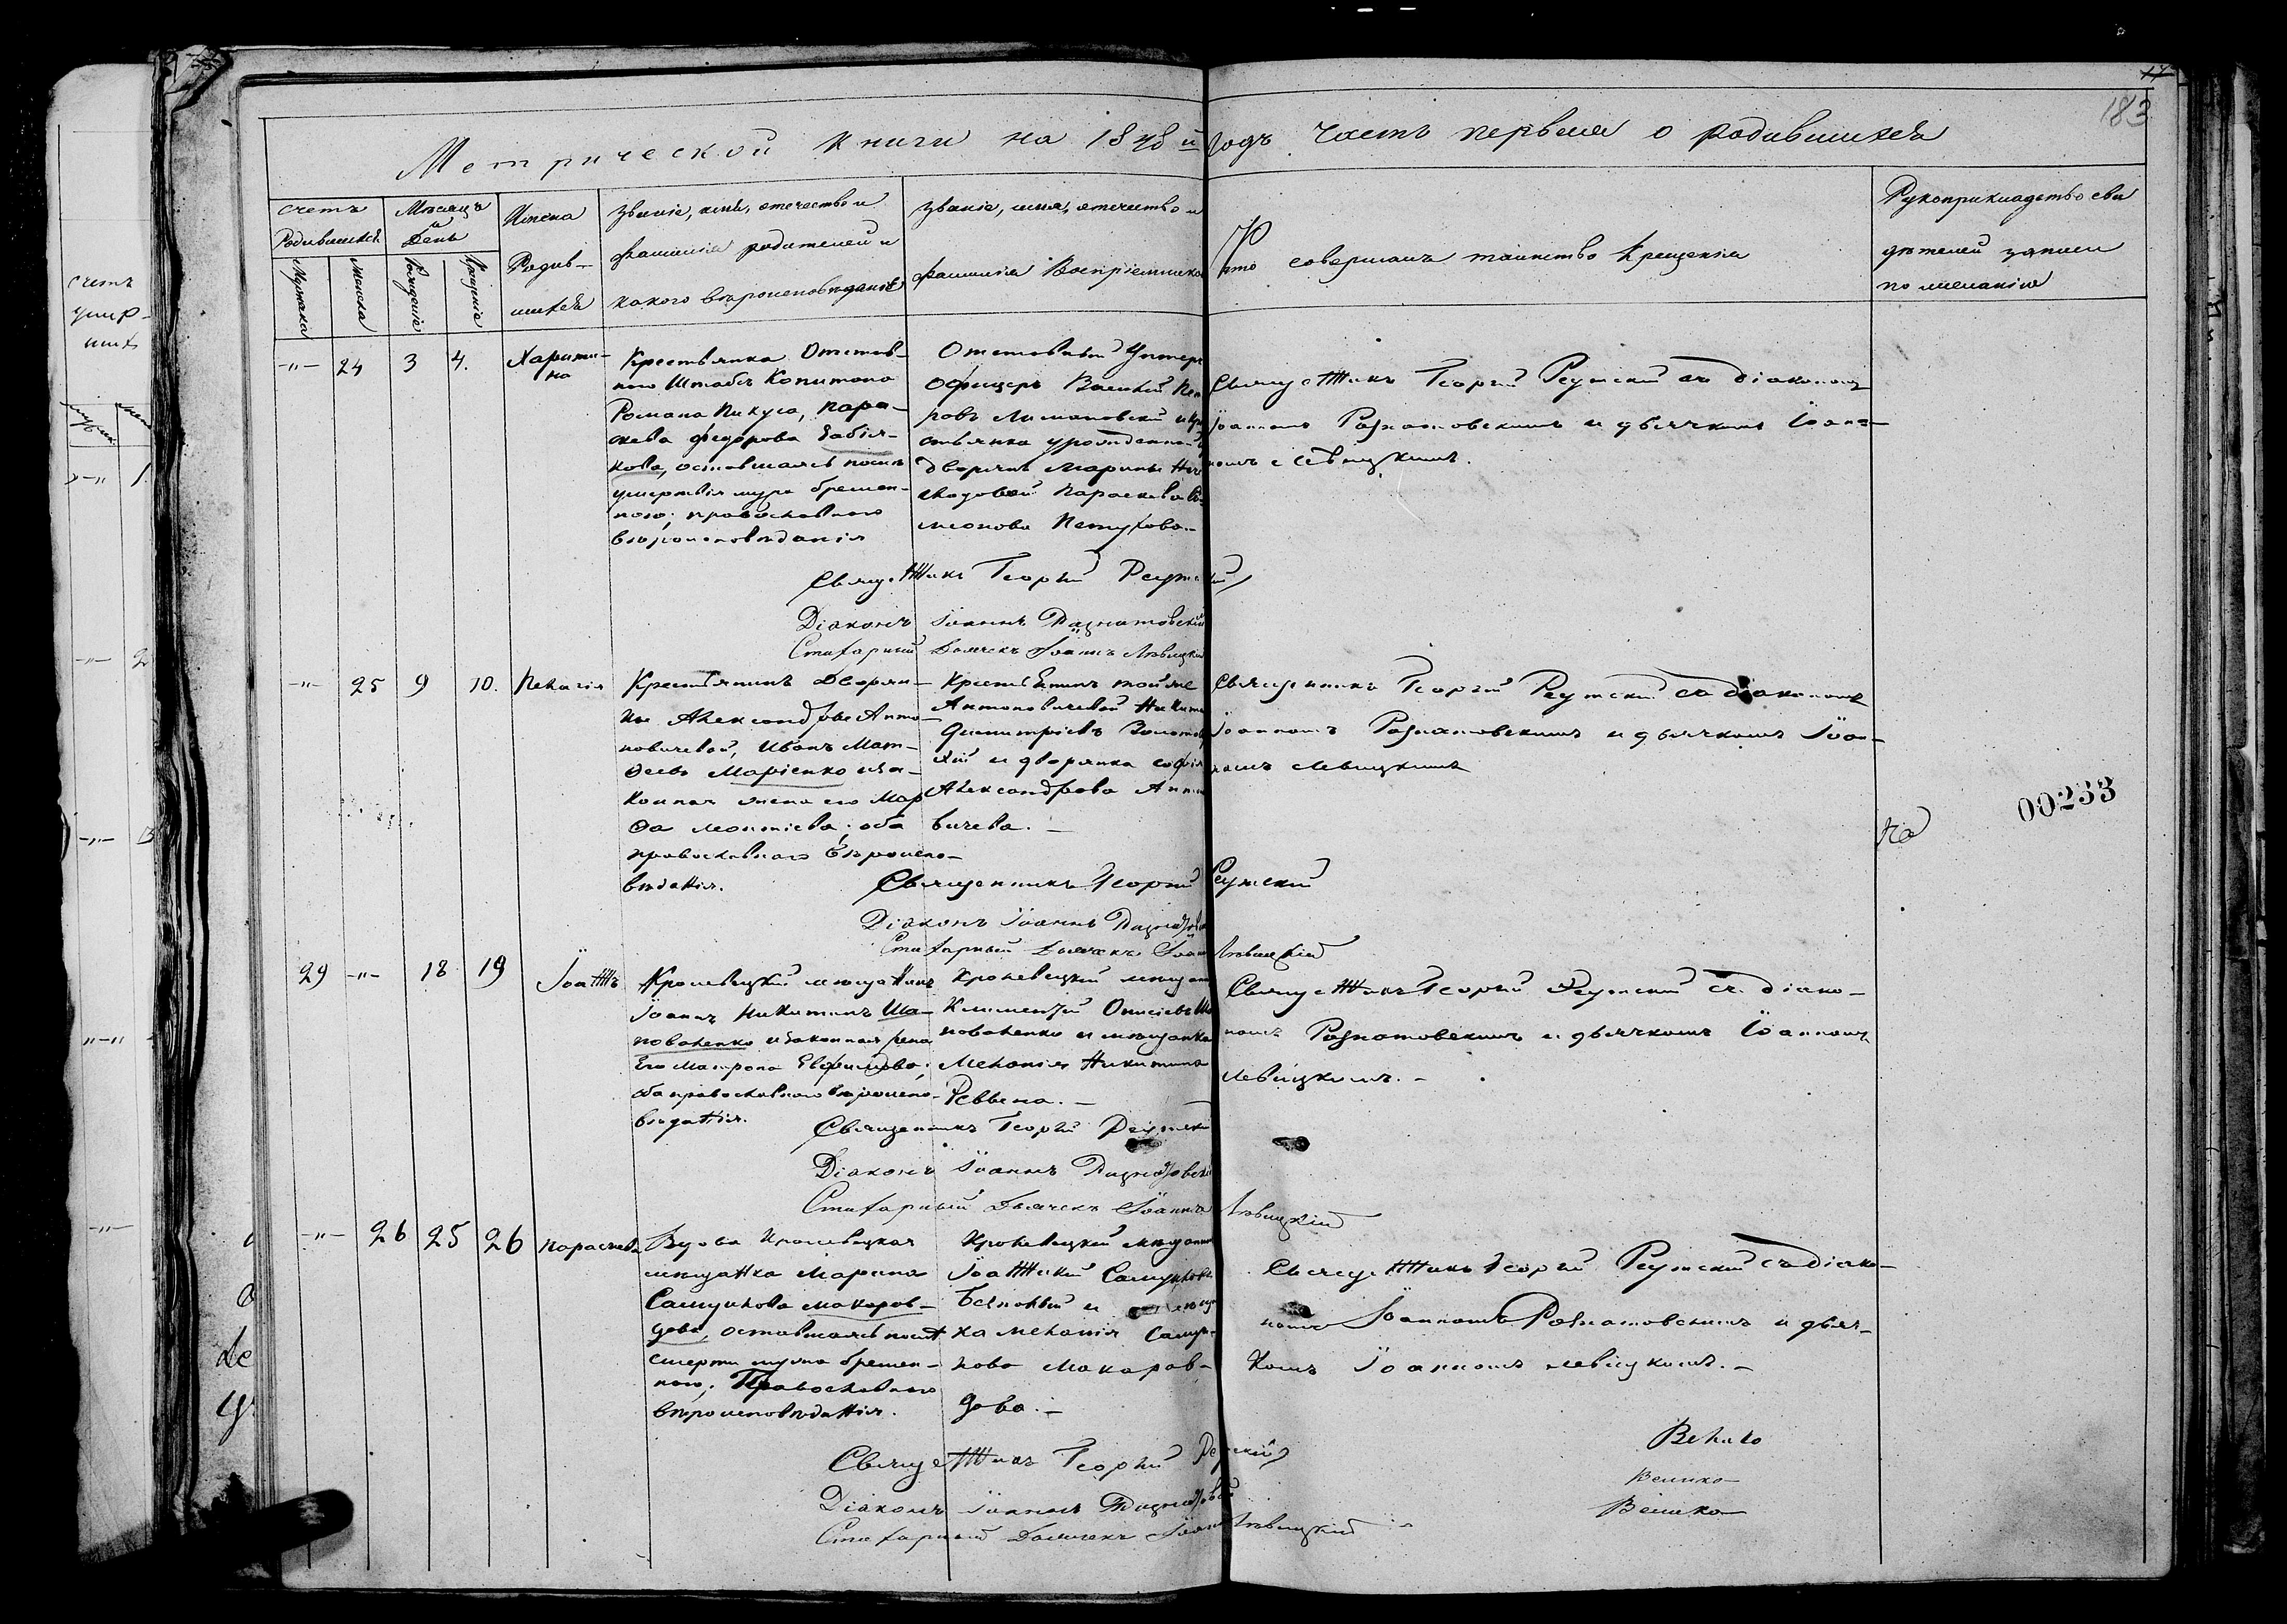 183
Метрической книги на 1848й годъ часть первая о родившихся
счетъ Родившихся
Мужеска
Женска
Мѣсяцъ и День
Рожденіе
Крещеніе
Имена
Родив-
шихся
Званіе, имя, отечество и
фамилія родителей и
какого вѣроисповѣданія
Званіе, имя, отечество и
фамилія Воспріемниковъ
Кто совершалъ таинство Крещенія
Рукоприкладство сви
дѣтелей записи
по желанію
-"- 24 3 4. Харити-
на
Крестьянка Отстав-
ного Штабсъ Капитана
Романа Пикуса, Пара-
скева Федорова Забія-
кова, оставшаяся послѣ
умертвія мужа беремен-
ною; православного
вѣроисповѣданія
Отставный Унтеръ
Офицеръ Василій Пет
ровъ Лимановскій и кре
стьянка урожденной
дворянъ Марины
Параскева
меонова Петухова.-
Священникъ Георгій Реутскій съ діакономъ
Іоанномъ Рознатовскимъ и дьячкомъ Іоан-
номъ Левицкимъ.
Священникъ Георгій Реутскій
Діаконъ Іоаннъ Рознатовскій
Стихарный Дьячекъ Іоаннъ Лѣвицкій
-"- 25 9 10. Пелагія
Крестьянинъ Дворян-
ки Александры Анто-
новичевой, Иванъ Мат-
ѳеевъ Маріенко и за-
конная жена его Мар
ѳа Леонтіева; оба
православного вѣроиспо-
вѣданія.
Крестьянинъ той же
Антоновичевой Никита
Димитріевъ
и дворянка Софія
Александрова Анто
вичева.-
Священникъ Георгій Реутскій съ діакономъ
Іоанномъ Рознатовскимъ и дьячкомъ Іоан-
номъ Левицкимъ
00233
Священникъ Георгій Реутскій
Діаконъ Іоаннъ Рознатовскій
Стихарный Дьячекъ Іоаннъ Лѣвицкій
29 -"- 18 19 Іоаннъ
Кролевецкій мещанинъ
Іоаннъ Никитинъ Ша-
повменко и законная жена
Его Матрона Евфимова;
оба православного вѣроиспо-
вѣданія.
Кролевецкій мещан
Климентій Онисіевъ Ша
поваленко и мещанка
Меланія Никитина
Ревvена.-
Священникъ Георгій Реутскій съ діако-
номъ Рознатовскимъ и дьячкомъ Іоанномъ
Левицкимъ.-
Священникъ Георгій Реутскій
Діаконъ Іоаннъ Рознатовскій
Стихарный Дьячекъ Іоаннъ Лѣвицкій
-"- 26 25 26 Параскева
Вдова Кролевецкая
мещанка Марина
Самуилова Макаров-
дова, оставшаяся послѣ
смерти мужа беремен-
ною; Православного
вѣроисповѣданія.
Кролевецкій мещанин
Іоанникій Самуиловъ
и мещан
ка Меланія Самуи-
лова Макаров-
дова.-
Священникъ Георгій Реутскій съ діако-
номъ Іоанномъ Рознатовскимъ и дьяч-
комъ Іоанномъ Левицкимъ.-
Священникъ Георгій Реутскій
Діаконъ Іоаннъ Рознатовскій
Стихарный Дьячекъ Іоаннъ Лѣвицкій